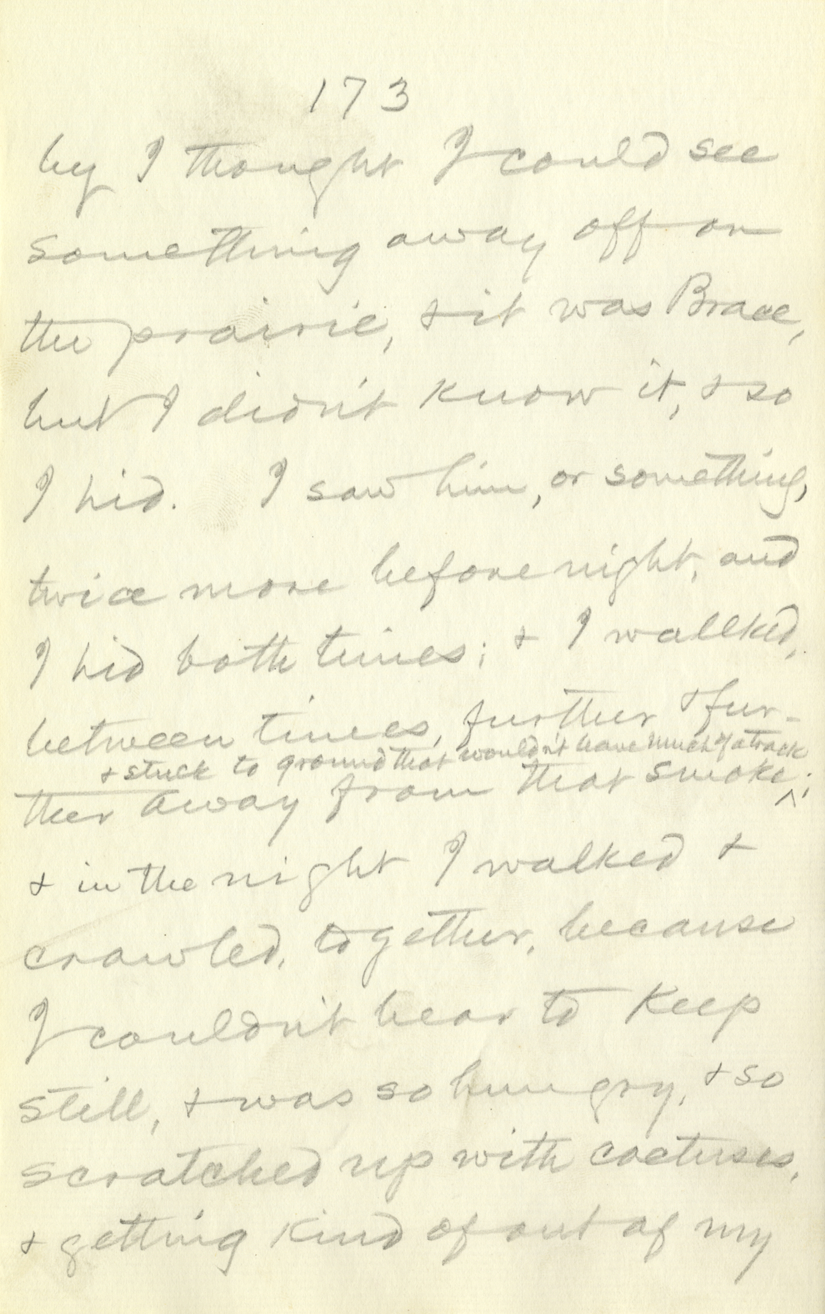 173
by I thought I could see
something away off on
the prairie, & it was Brace,
but I didn't know it, & so
I hid. I saw him, or something,
twice more before night, and
I hid both times; & I walked,
between times, further & fur-
& stuck to ground that wouldn't leave much of a track
ther away from that smoke ^;
& in the night I walked &
crawled, together, because
I couldn't bear to keep
still, & was so hungry, & so
scratched up with cactuses,
& getting kind of out of my